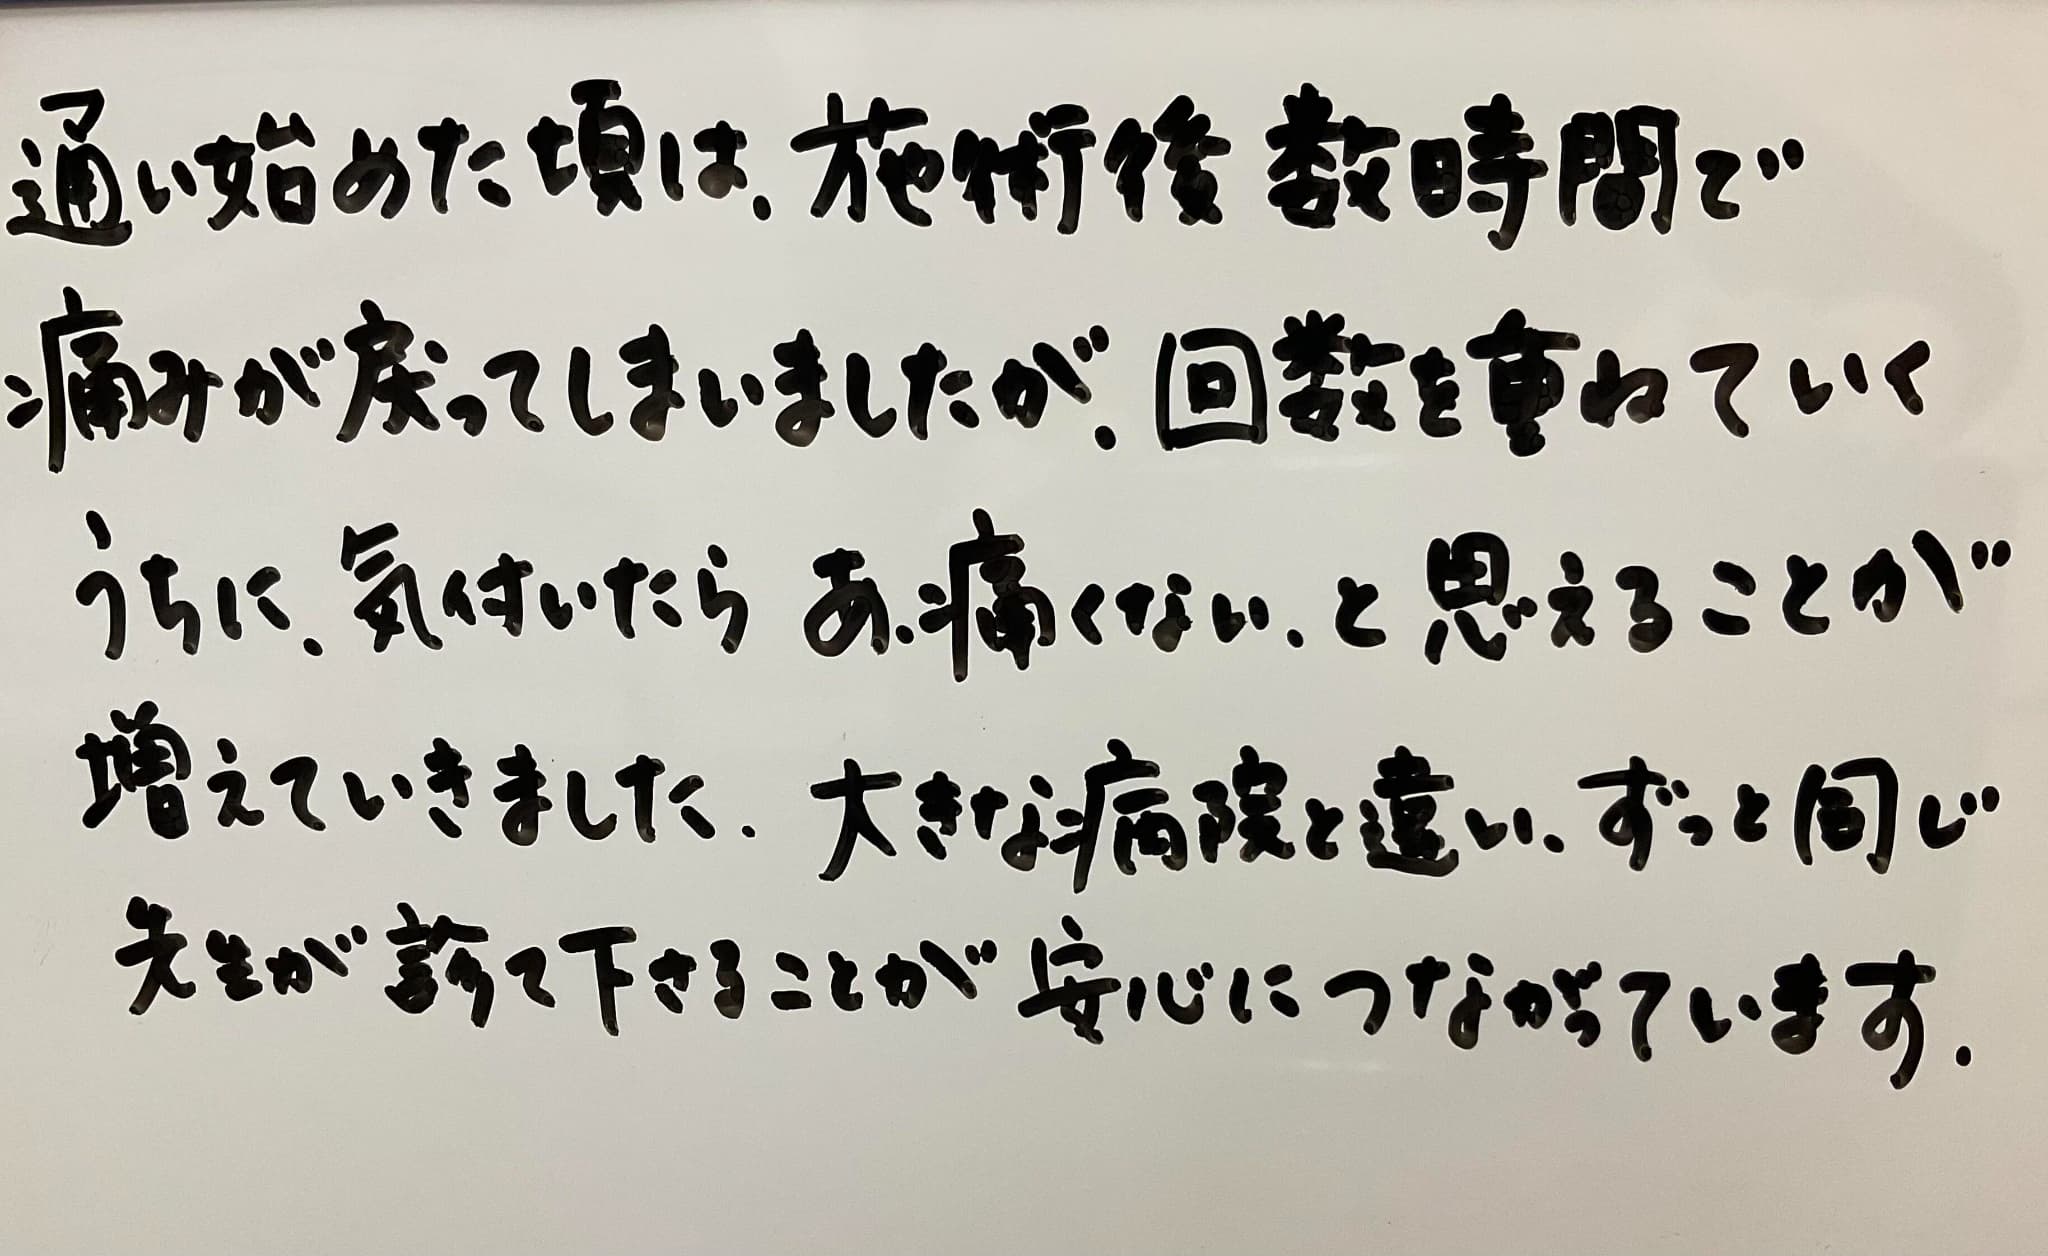 通い始めた頃は、施術後数時間で
痛みが戻ってしまいましたが、回数を重ねていく
うちに、気付いたら あ、痛くない、と思えることが
増えていきました。大きな病院と違い、ずっと同じ
先生が診て下さることが安心につながっています。